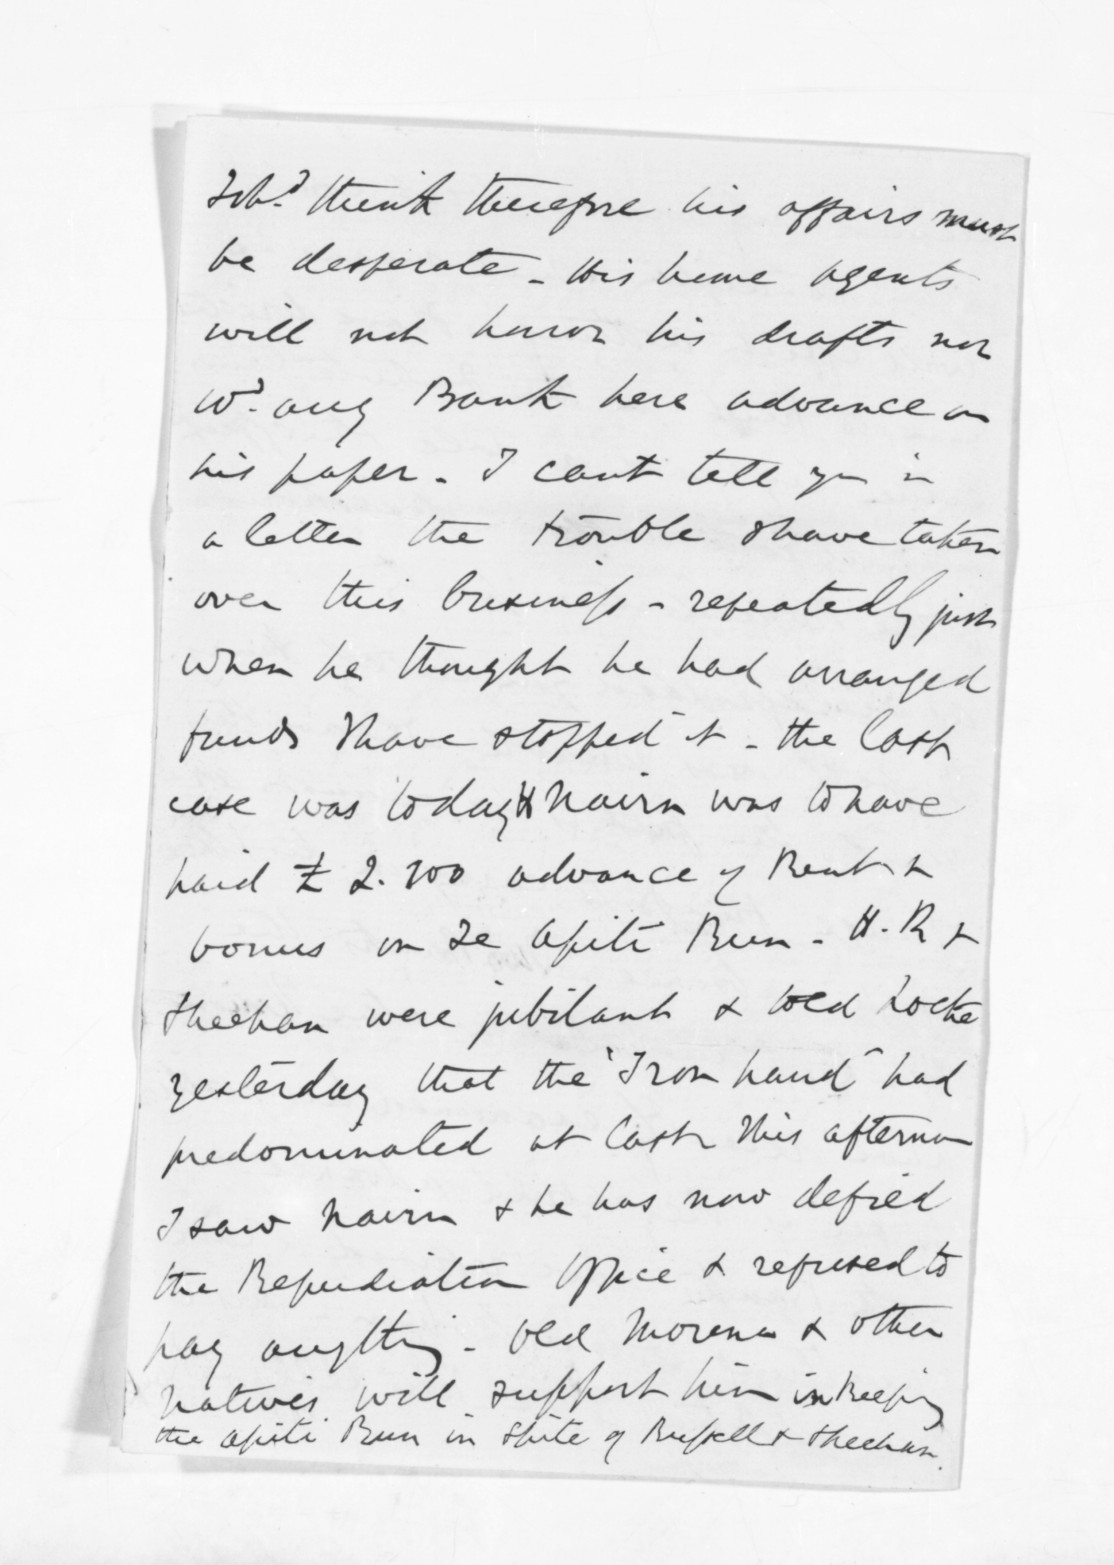 I shd. think therefore his affairs must
be desperate - His home agents
will not honor his drafts nor
wd. any Bank here advance on
his paper - I cant tell you in
a letter the trouble I have taken
over this business - repeatedly just
when he thought he had arranged
funds I have stopped it - the last
case was today Nairn was to have
paid £ 2. advance of Rent &
bonus on Te Apiti Run - H. R &
Sheehan were jubilant & told Locke
yesterday that the "Iron hand" had
predominated at last This afternoon
I saw Nairn & he has now defied
the Repudiation Office & refused to
pay anything - Old Morena & other
natives will support him in keeping
the Apiti Run in spite of Russell & Sheehan.